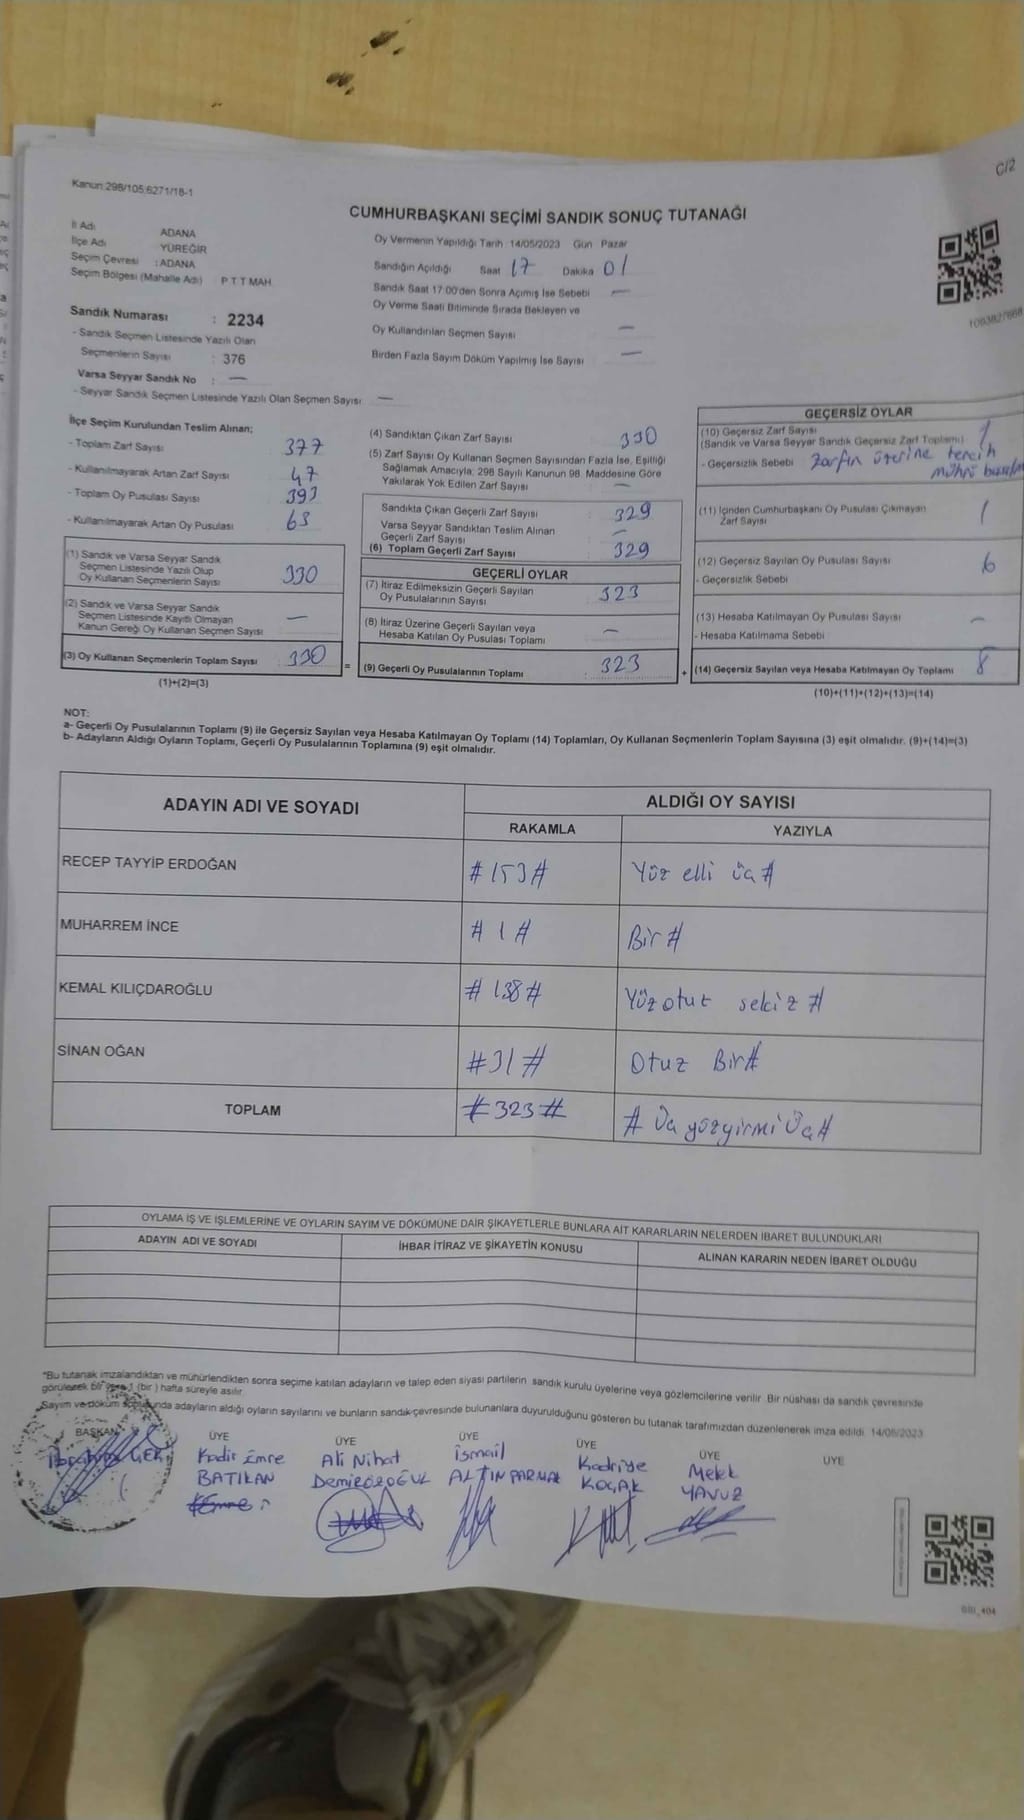 C/2
Kanun:298/105.6271/18-1
CUMHURBAŞKANI SEÇİMİ SANDIK SONUÇ TUTANAĞI
İl Adı ADANA
İlçe Adı YÜREĞİR
Seçim Çevresi : ADANA
Seçim Bölgesi (Mahalle Adı) P T T MAH.
Sandık Numarası : 2234
- Sandık Seçmen Listesinde Yazılı Olan
Seçmenlerin Sayısı : 376
Varsa Seyyar Sandık No : —
- Seyyar Sandık Seçmen Listesinde Yazılı Olan Seçmen Sayısı —
Oy Vermenin Yapıldığı Tarih : 14/05/2023 Gün Pazar
Sandığın Açıldığı Saat 17 Dakika 01
Sandık Saat 17:00'den Sonra Açımış İse Sebebi —
Oy Verme Saati Bitiminde Sırada Bekleyen ve
Oy Kullandırılan Seçmen Sayısı —
Birden Fazla Sayım Döküm Yapılmış İse Sayısı —
İlçe Seçim Kurulundan Teslim Alınan;
- Toplam Zarf Sayısı 377
- Kullanılmayarak Artan Zarf Sayısı 47
- Toplam Oy Pusulası Sayısı 393
- Kullanılmayarak Artan Oy Pusulası 63
(1) Sandık ve Varsa Seyyar Sandık
Seçmen Listesinde Yazılı Olup
Oy Kullanan Seçmenlerin Sayısı 330
(2) Sandık ve Varsa Seyyar Sandık
Seçmen Listesinde Kayıtlı Olmayan
Kanun Gereği Oy Kullanan Seçmen Sayısı —
(3) Oy Kullanan Seçmenlerin Toplam Sayısı 330
(1)+(2)=(3)
(4) Sandıktan Çıkan Zarf Sayısı 330
(5) Zarf Sayısı Oy Kullanan Seçmen Sayısından Fazla İse, Eşitliği
Sağlamak Amacıyla; 298 Sayılı Kanunun 98. Maddesine Göre
Yakılarak Yok Edilen Zarf Sayısı —
Sandıkta Çıkan Geçerli Zarf Sayısı : 329
Varsa Seyyar Sandıktan Teslim Alınan
Geçerli Zarf Sayısı —
(6) Toplam Geçerli Zarf Sayısı : 329
GEÇERLİ OYLAR
(7) İtiraz Edilmeksizin Geçerli Sayılan
Oy Pusulalarının Sayısı : 323
(8) İtiraz Üzerine Geçerli Sayılan veya
Hesaba Katılan Oy Pusulası Toplamı —
= (9) Geçerli Oy Pusulalarının Toplamı : 323
GEÇERSİZ OYLAR
(10) Geçersiz Zarf Sayısı
(Sandık ve Varsa Seyyar Sandık Geçersiz Zarf Toplamı) 1
- Geçersizlik Sebebi Zarfın üzerine tercih
mührü
(11) İçinden Cumhurbaşkanı Oy Pusulası Çıkmayan
Zarf Sayısı 1
(12) Geçersiz Sayılan Oy Pusulası Sayısı 6
- Geçersizlik Sebebi
(13) Hesaba Katılmayan Oy Pusulası Sayısı —
- Hesaba Katılmama Sebebi
+ (14) Geçersiz Sayılan veya Hesaba Katılmayan Oy Toplamı 8
(10)+(11)+(12)+(13)=(14)
NOT:
a- Geçerli Oy Pusulalarının Toplamı (9) ile Geçersiz Sayılan veya Hesaba Katılmayan Oy Toplamı (14) Toplamları, Oy Kullanan Seçmenlerin Toplam Sayısına (3) eşit olmalıdır. (9)+(14)=(3)
b- Adayların Aldığı Oyların Toplamı, Geçerli Oy Pusulalarının Toplamına (9) eşit olmalıdır.
ADAYIN ADI VE SOYADI ALDIĞI OY SAYISI
RAKAMLA YAZIYLA
RECEP TAYYİP ERDOĞAN #153# Yüz elli üç#
MUHARREM İNCE #1# Bir#
KEMAL KILIÇDAROĞLU #138# Yüzotuz sekiz#
SİNAN OĞAN #31# Otuz Bir#
TOPLAM #323# #Üçyüzyirmi Üç#
OYLAMA İŞ VE İŞLEMLERİNE VE OYLARIN SAYIM VE DÖKÜMÜNE DAİR ŞİKAYETLERLE BUNLARA AİT KARARLARIN NELERDEN İBARET BULUNDUKLARI
ADAYIN ADI VE SOYADI İHBAR İTİRAZ VE ŞİKAYETİN KONUSU ALINAN KARARIN NEDEN İBARET OLDUĞU
*Bu tutanak imzalandıktan ve mühürlendikten sonra seçime katılan adayların ve talep eden siyasi partilerin sandık kurulu üyelerine veya gözlemcilerine verilir. Bir nüshası da sandık çevresinde
görülecek bir yere 1 (bir ) hafta süreyle asılır.
Sayım ve döküm sonucunda adayların aldığı oyların sayılarını ve bunların sandık çevresinde bulunanlara duyurulduğunu gösteren bu tutanak tarafımızdan düzenlenerek imza edildi. 14/05/2023
BAŞKAN ÜYE ÜYE ÜYE ÜYE ÜYE ÜYE
İbrahim Kadir Emre Ali Nihat İsmail Kadriye Melek
BATIKAN ALTINPARMAK KOÇAK YAVUZ